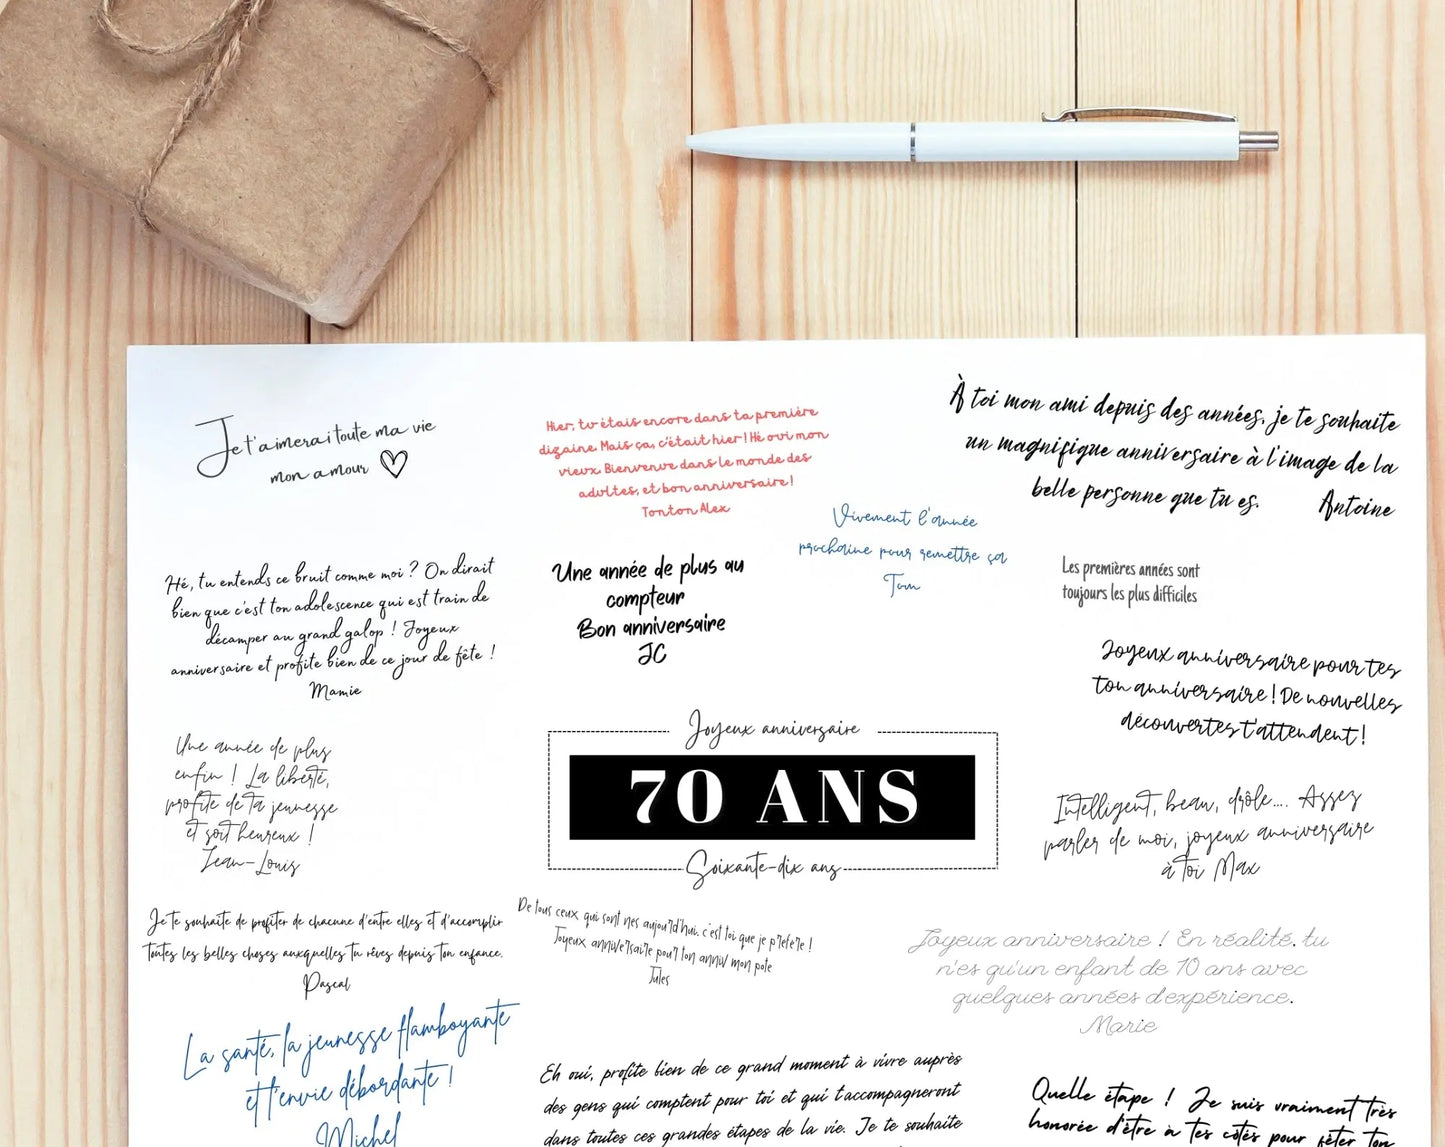 Je t'aimerai toute ma vie
mon amour
Hier, tu étais encore dans ta première
dizaine. Mais ça, c'était hier ! Hé oui mon
vieux. Bienvenue dans le monde des
adultes, et bon anniversaire !
Tonton Alex
À toi mon ami depuis des années, je te souhaite
un magnifique anniversaire à l'image de la
belle personne que tu es. Antoine
Vivement l'année
prochaine pour remettre ça
Tom
Hé, tu entends ce bruit comme moi ? On dirait
bien que c'est ton adolescence qui est train de
décamper au grand galop ! Joyeux
anniversaire et profite bien de ce jour de fête !
Mamie
Une année de plus au
compteur
Bon anniversaire
JC
Les premières années sont
toujours les plus difficiles
Joyeux anniversaire pour tes
ton anniversaire ! De nouvelles
découvertes t'attendent !
Une année de plus
enfin ! La liberté,
profite de ta jeunesse
et soit heureux !
Jean-Louis
Joyeux anniversaire
70 ANS
Soixante-dix ans
Intelligent, beau, drôle.... Assez
parler de moi, joyeux anniversaire
à toi Max
Je te souhaite de profiter de chacune d'entre elles et d'accomplir
toutes les belles choses auxquelles tu rêves depuis ton enfance.
Pascal
De tous ceux qui sont nés aujourd'hui. c'est toi que je préfère !
Joyeux anniversaire pour ton anniv mon pote
Jules
Joyeux anniversaire ! En réalité. tu
n'es qu'un enfant de 10 ans avec
quelques années d'expérience.
Marie
La santé, la jeunesse flamboyante
et l'envie débordante !
Michel
Eh oui, profite bien de ce grand moment à vivre auprès
des gens qui comptent pour toi et qui t'accompagneront
dans toutes ces grandes étapes de la vie. Je te souhaite
Quelle étape ! Je suis vraiment très
honorée d'être à tes côtés pour fêter ton